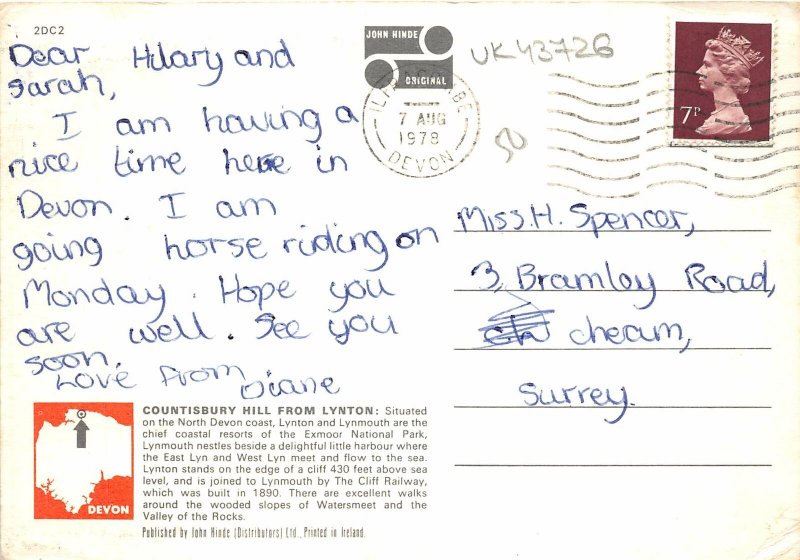 2DC2
Dear Hilary and
Sarah,
I am having a
nice time here in
Devon. I am
going horse riding on
Monday. Hope you
are well. See you
soon.
Love from
Diane
JOHN HINDE
ORIGINAL
UK43726
7P
7 AUG
1978
DEVON
50
Miss. H. Spencer,
3, Bramley Road,
cheam,
Surrey.
DEVON
COUNTISBURY HILL FROM LYNTON: Situated
on the North Devon coast, Lynton and Lynmouth are the
chief coastal resorts of the Exmoor National Park,
Lynmouth nestles beside a delightful little harbour where
the East Lyn and West Lyn meet and flow to the sea.
Lynton stands on the edge of a cliff 430 feet above sea
level, and is joined to Lynmouth by The Cliff Railway,
which was built in 1890. There are excellent walks
around the wooded slopes of Watersmeet and the
Valley of the Rocks.
Published by John Hinde (Distributors) Ltd., Printed in Ireland.